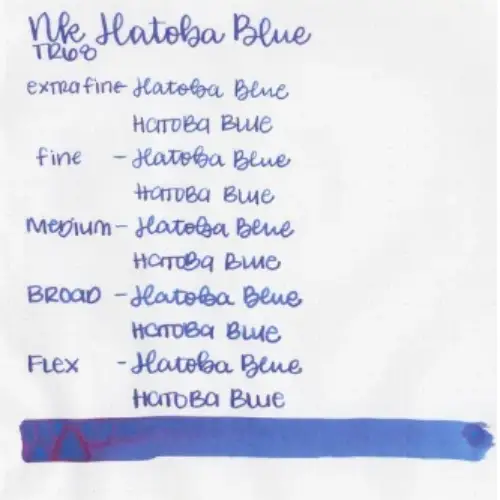 Nk Hatoba Blue
TR68
extra fine - Hatoba Blue
Hatoba Blue
fine - Hatoba Blue
Hatoba Blue
Medium - Hatoba Blue
Hatoba Blue
BROAD - Hatoba Blue
Hatoba Blue
Flex - Hatoba Blue
Hatoba Blue